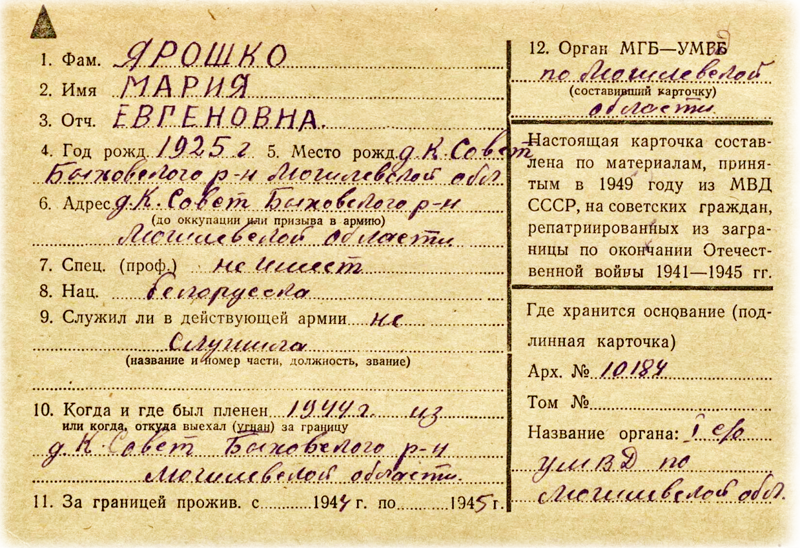 1. Фам. ЯРОШКО
2. Имя МАРИЯ
3. Отч. ЕВГЕНОВНА.
4. Год рожд 1925 г 5. Место рожд. д. К. Совет
Быховского р-н Могилевской обл.
6. Адрес д. К. Совет Быховского р-н
(до оккупации или призыва в армию)
Могилевской области
7. Спец. (проф.) не имеет
8. Нац. белорусска
9. Служил ли в действующей армии не
служила
(название и номер части, должность, звание)
10. Когда и где был пленен 1944 г. из
или когда, откуда выехал (угнан) за границу
д. К. Совет Быховского р-н
Могилевской области.
11. За границей прожив. с 1944 г. по 1945 г.
12. Орган МГБ—УМГБ
по Могилевской
(составивший карточку)
области
Настоящая карточка состав-
лена по материалам, приня-
тым в 1949 году из МВД
СССР, на советских граждан,
репатриированных из загра-
ницы по окончании Отечест-
венной войны 1941—1945 гг.
Где хранится основание (под-
линная карточка)
Арх. № 10184
Том №
Название органа: I с/о
УМВД по
Могилевской обл.